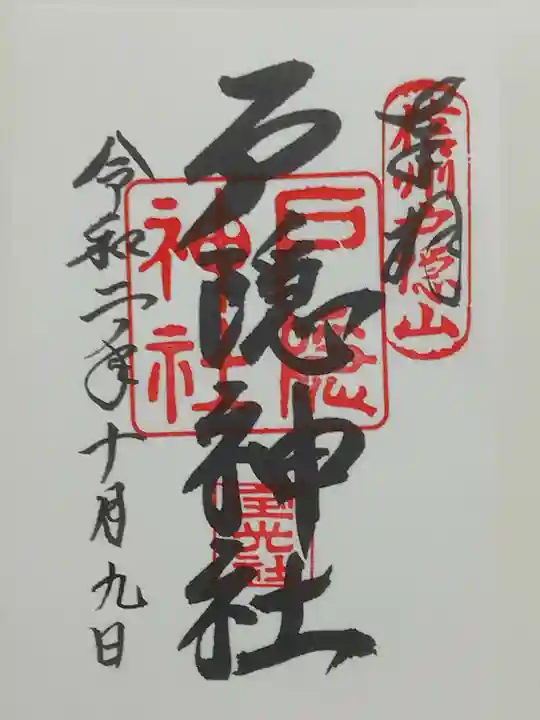 奉拝
信州戸隠山
戸隠神社
戸隠
神社
宝光社
令和二年十月九日